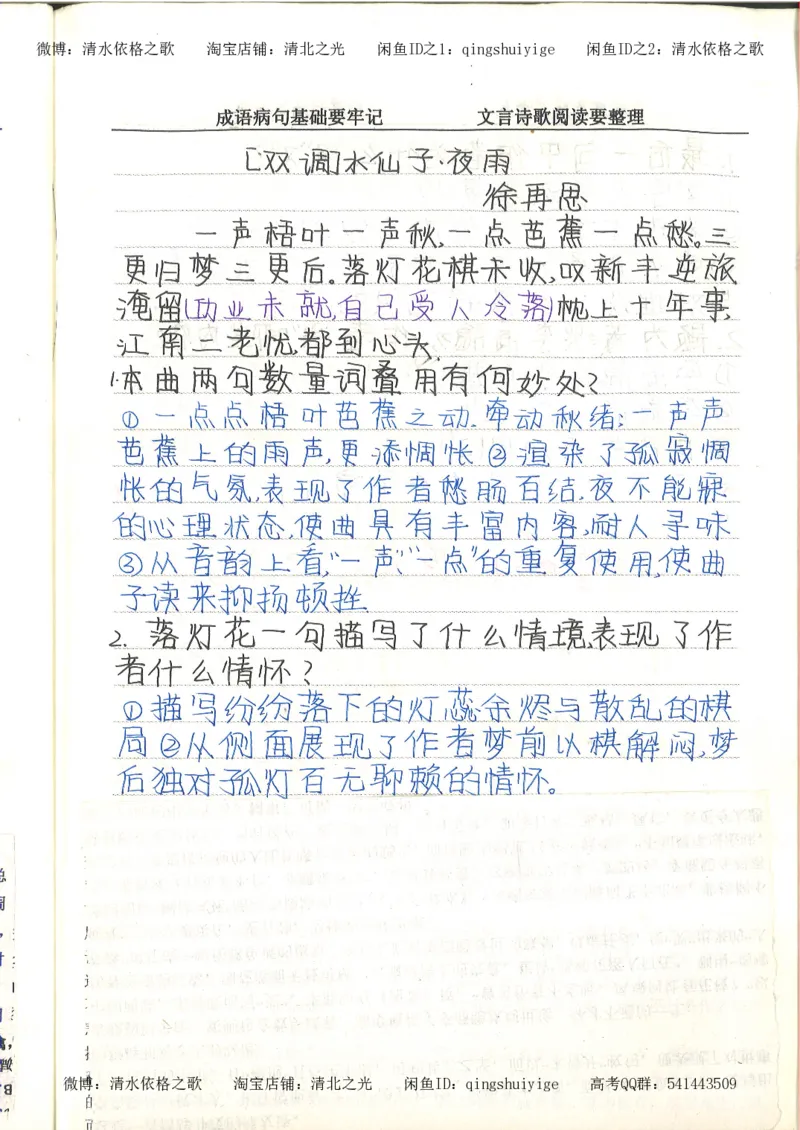 微博：清水依格之歌 淘宝店铺：清北之光 闲鱼ID之1：qingshuiyige 闲鱼ID之2：清水依格之歌
成语病句基础要牢记 文言诗歌阅读要整理
[双调]水仙子·夜雨
徐再思
一声梧叶一声秋,一点芭蕉一点愁。三
更归梦三更后。落灯花棋未收,叹新丰逆旅
淹留(功业未就,自己受人冷落)枕上十年事,
江南二老忧,都到心头.
1.本曲两句数量词叠用有何妙处?
①一点点梧叶芭蕉之动.牵动秋绪;一声声
芭蕉上的雨声,更添惆怅②渲染了孤寂惆
怅的气氛,表现了作者愁肠百结,夜不能寐
的心理状态,使曲具有丰富内容,耐人寻味
③从音韵上看,“一声”“一点”的重复使用,使曲
子读来抑扬顿挫
2.落灯花一句描写了什么情境表现了作
者什么情怀?
①描写纷纷落下的灯蕊余烬与散乱的棋
局②从侧面展现了作者梦前以棋解闷,梦
后独对孤灯百无聊赖的情怀。
微博：清水依格之歌 淘宝店铺：清北之光 闲鱼ID：qingshuiyige 高考QQ群：541443509